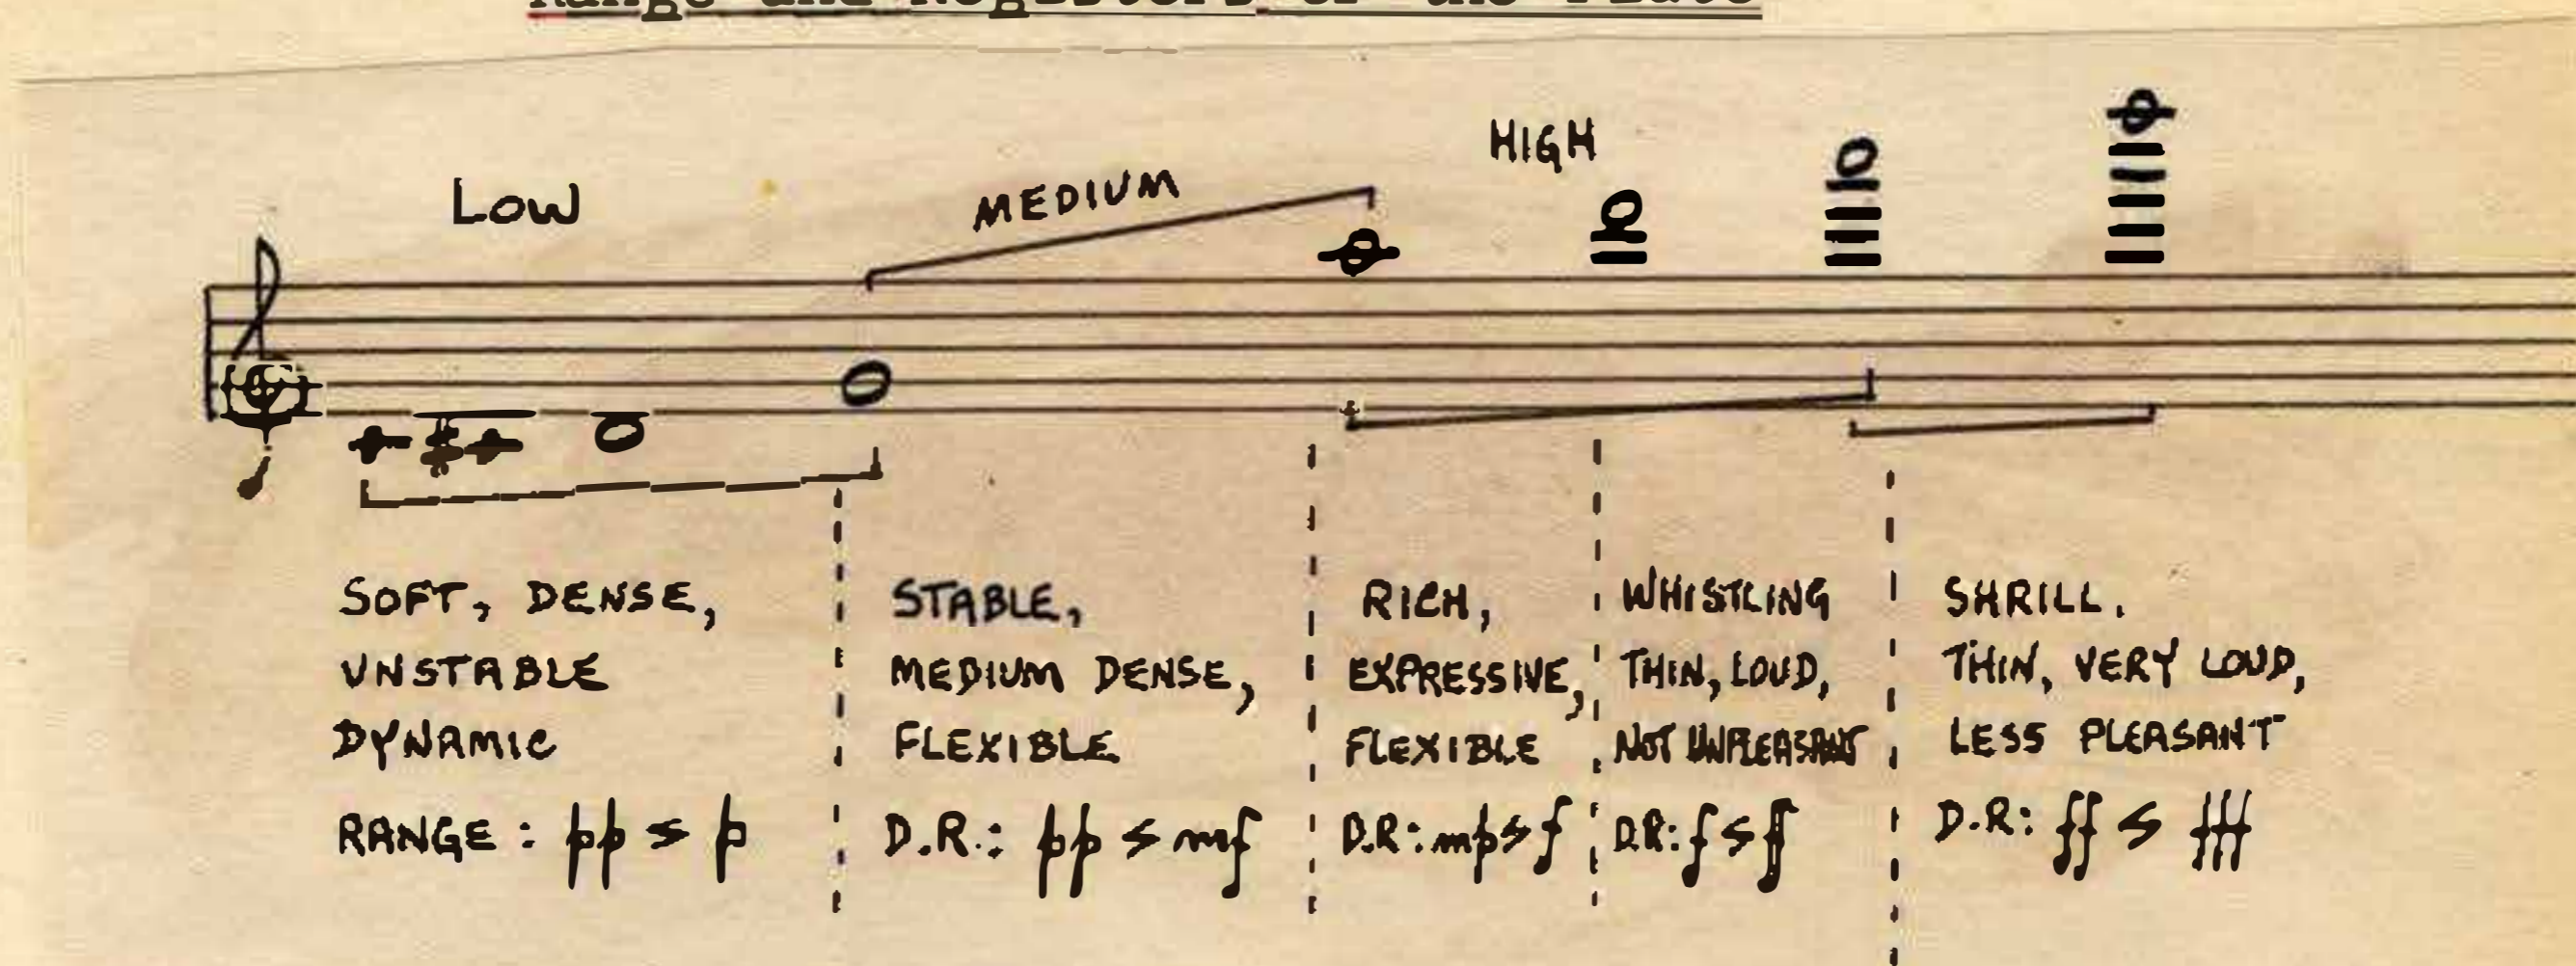 Range and Registers of the Flute
LOW
MEDIUM
HIGH
SOFT, DENSE,
UNSTABLE
DYNAMIC
RANGE: pp S p
STABLE,
MEDIUM DENSE,
FLEXIBLE
D.R.: pp S mf
RICH,
EXPRESSIVE,
FLEXIBLE
D.R: mp S f
WHISTLING
THIN, LOUD,
NOT UNPLEASANT
D.R: f S ff
SHRILL.
THIN, VERY LOUD,
LESS PLEASANT
D.R: ff S fff